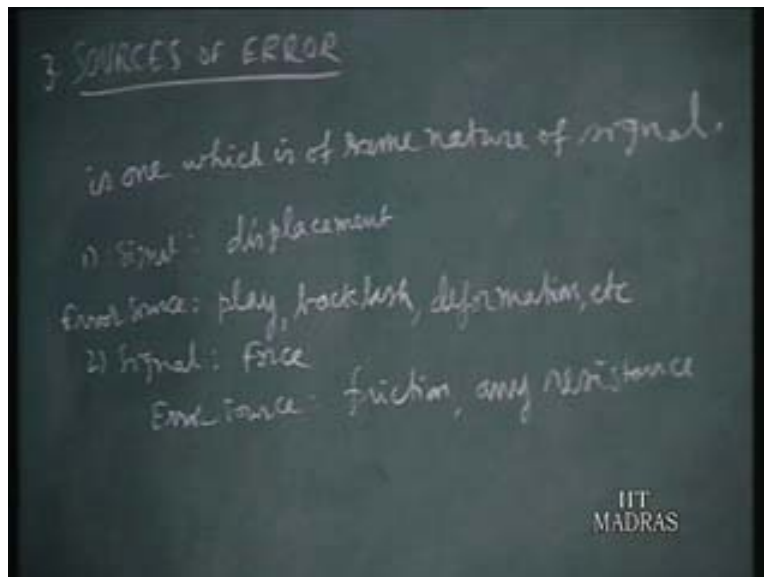 3. SOURCES OF ERROR
is one which is of same nature of signal.
1) Signal: displacement
Error Source: play, backlash, deformation, etc
2) Signal: Force
Error Source: friction, any resistance
IIT
MADRAS